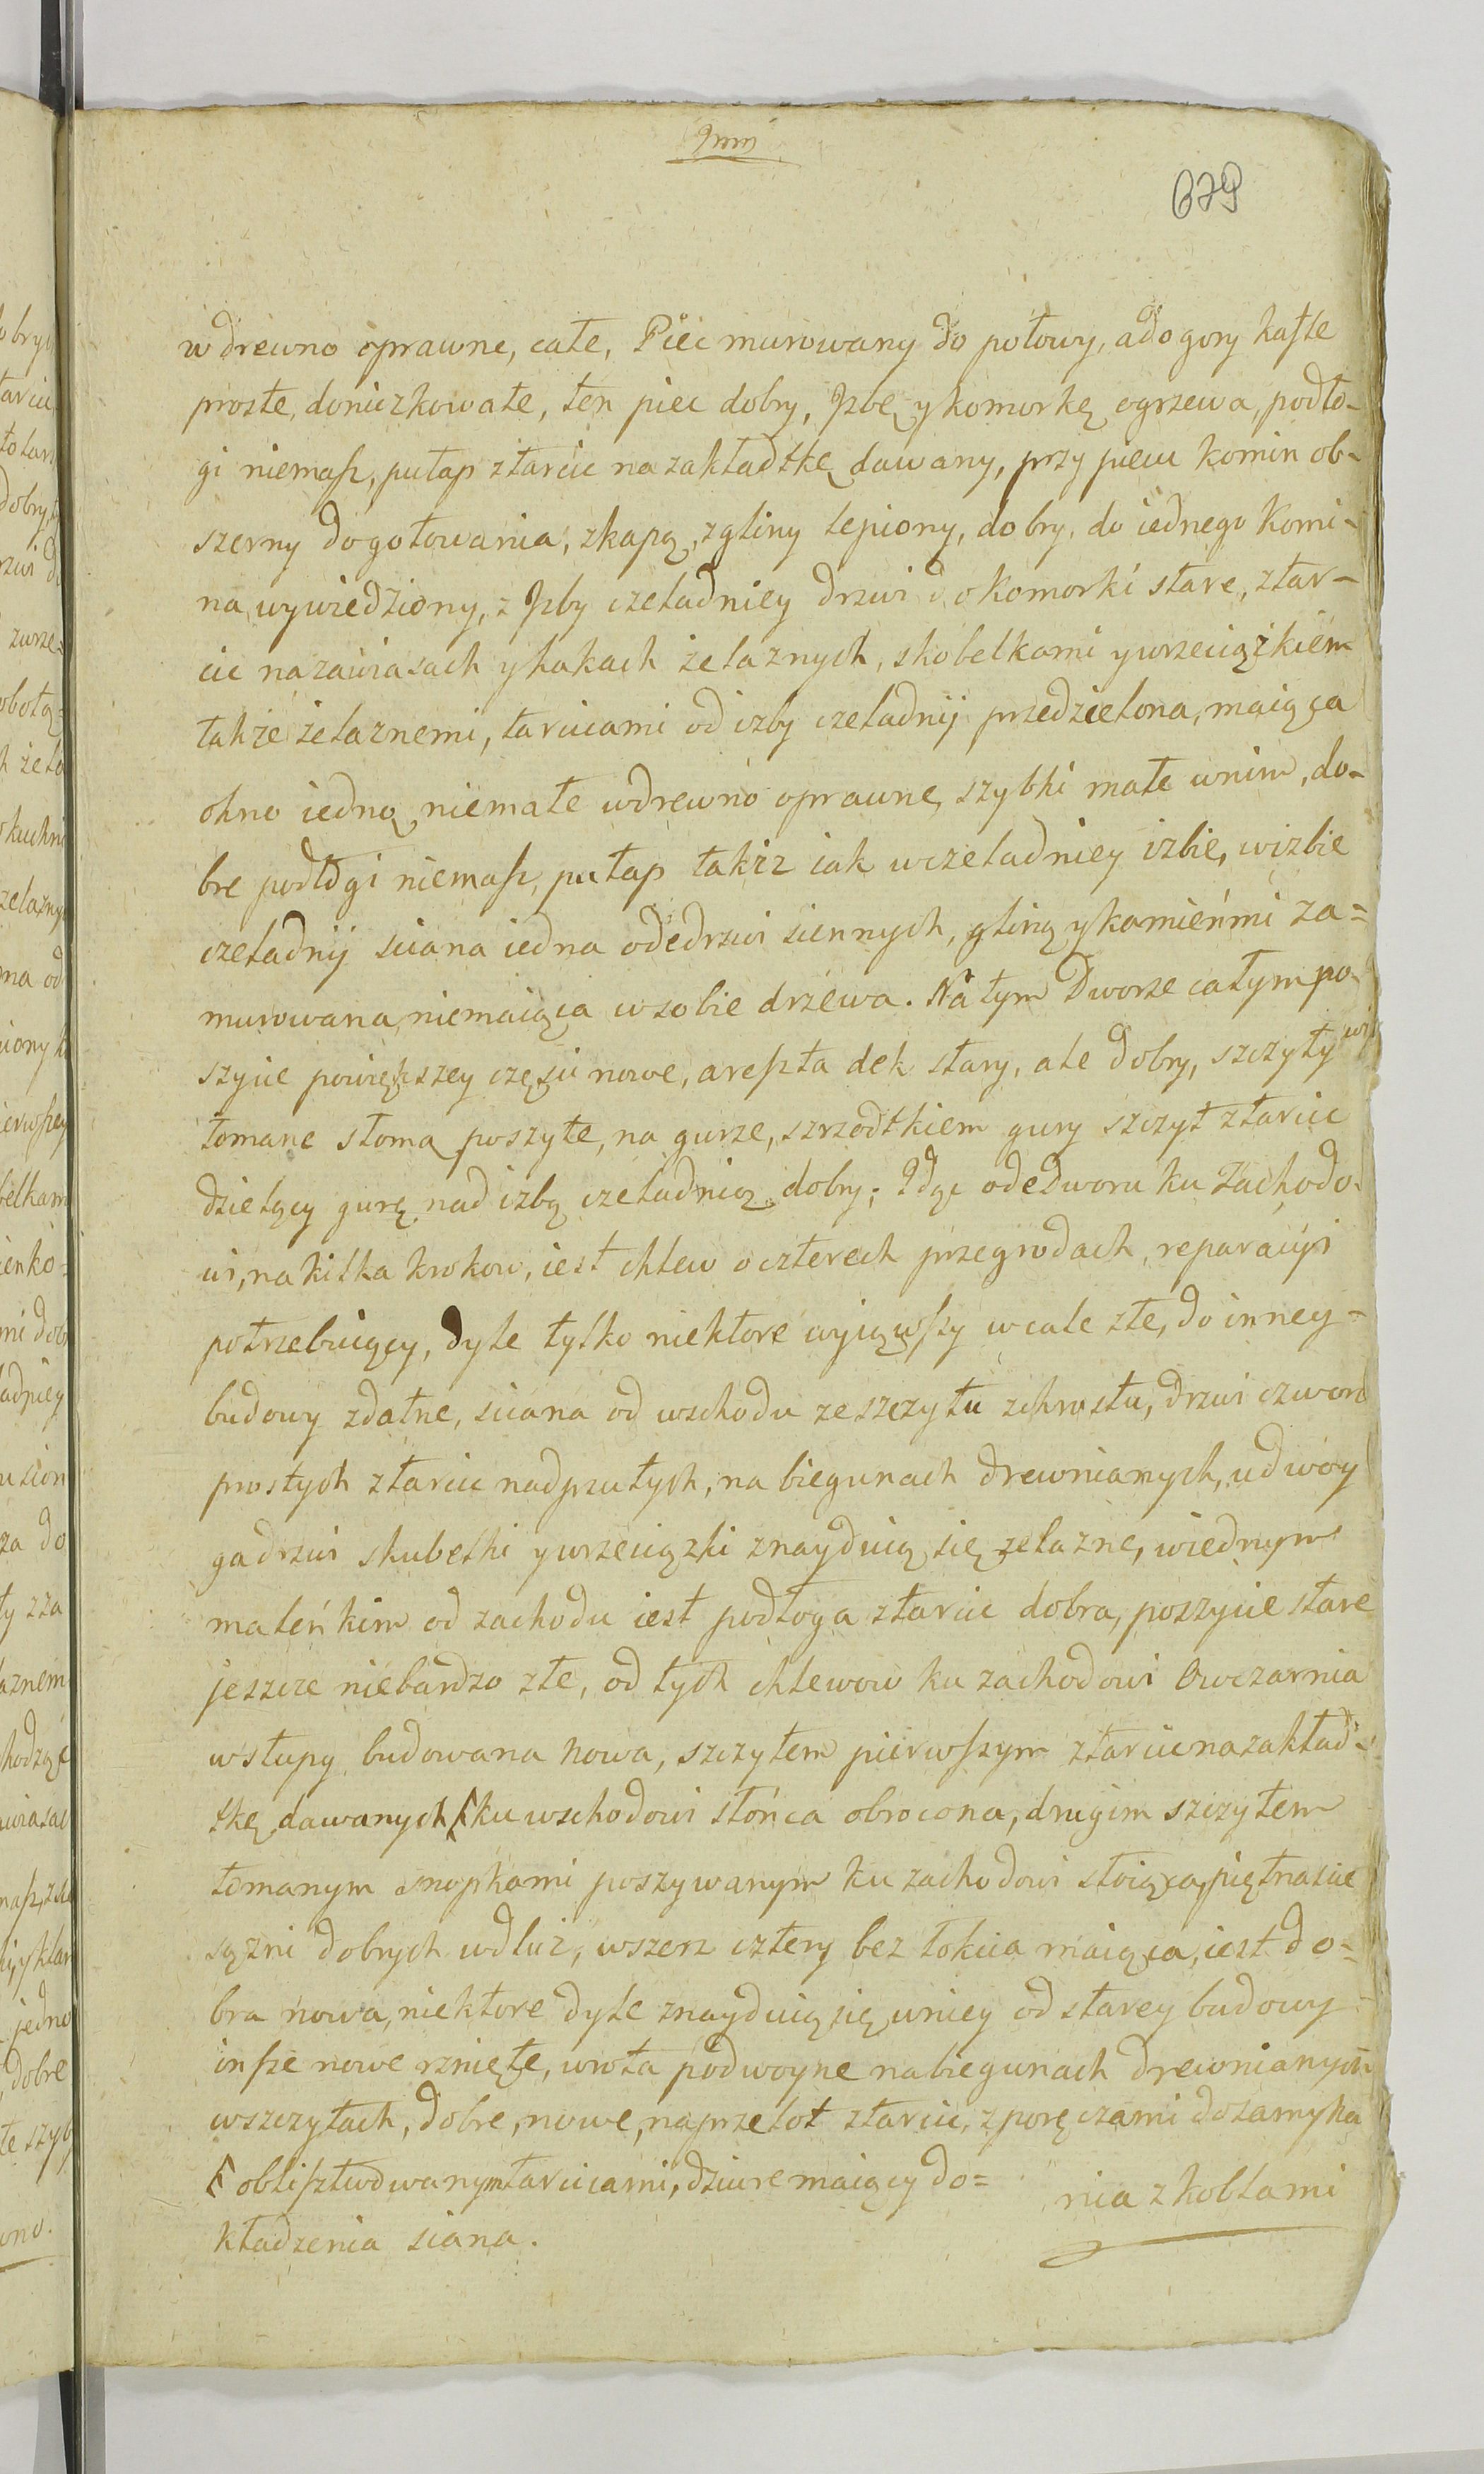 679
w drewno oprawne, całe, Piec murowany do połowy, a do gory kafle
proste, doniczkowate, ten piec dobry, Jzbę y komorkę ogrzewa, podło-
gi niemasz, pułap z tarcic na zakładtkę dawany, przy piecu komin ob-
szerny do gotowania, z kapą, z gliny lepiony, dobry, do iednego Komi-
na wywiedziony, z Jzby czeladniey drzwi do komorki stare, z tar-
cic na zawiasach y hakach żelaznych, skobelkami y wrzeciążkiem
także żelaznemi, tarcicami od izby czeladnij przedzielona, maiąca
okno iedno niemałe w drewno oprawne, szybki małe w nim, do-
bre podłogi niemasz, pułap takiż iak w czeladniey izbie, w izbie
czeladnij sciana iedna ode drzwi siennych, gliną y kamieńmi za=
murowana, niemaiąca w sobie drzewa. Na tym Dworze całym po-
szycie powiększey częsci nowe, a reszta dek stary, ale dobry, szczyty
łomane słomą poszyte, na gurze, szrzodkiem gury szczyt z tarcic
dzielący gurę nad izbą czeladnią dobry; Jdąc ode Dworu ku Zachodo-
wi, na kilka krokow, iest chlew o czterech przegrodach, reparacyi
potrzebuiący, dyle tylko niektore wyiąwszy wcale złe, do inney=
budowy zdatne, sciana od wschodu ze szczytu z chrustu, drzwi czworo
prostych z tarcic nadpsutych, na biegunach drewnianych, u dwoy
ga drzwi skubelki y wrzeciązki znayduią się żelazne, w iednym
maleńkim od zachodu iest podłoga z tarcic dobra, poszycie stare
jeszcze niebardzo złe, od tych chlewow ku zachodowi Owczarnia
w słupy budowana nowa, szczytem pierwszym z tarcic na zakład=
tkę dawanych ku wschodowi słońca obrocona, drugim szczytem
łomanym snopkami poszywanym ku zachodowi stoiąca, piętnascie
sążni dobrych wdłuż, wszerz cztery bez łokcia maiąca, iest do=
bra nowa, niektore dyle znayduią się w niey od starey budowy
insze nowe rznięte, wrota podwoyne na biegunach drewnianych
w szczytach, dobre, nowe, naprzelot z tarcic, z poręczami do zamyka
oblisztwowanym tarcicami, dziure maiący do= nia z koblami
kładzenia siana.